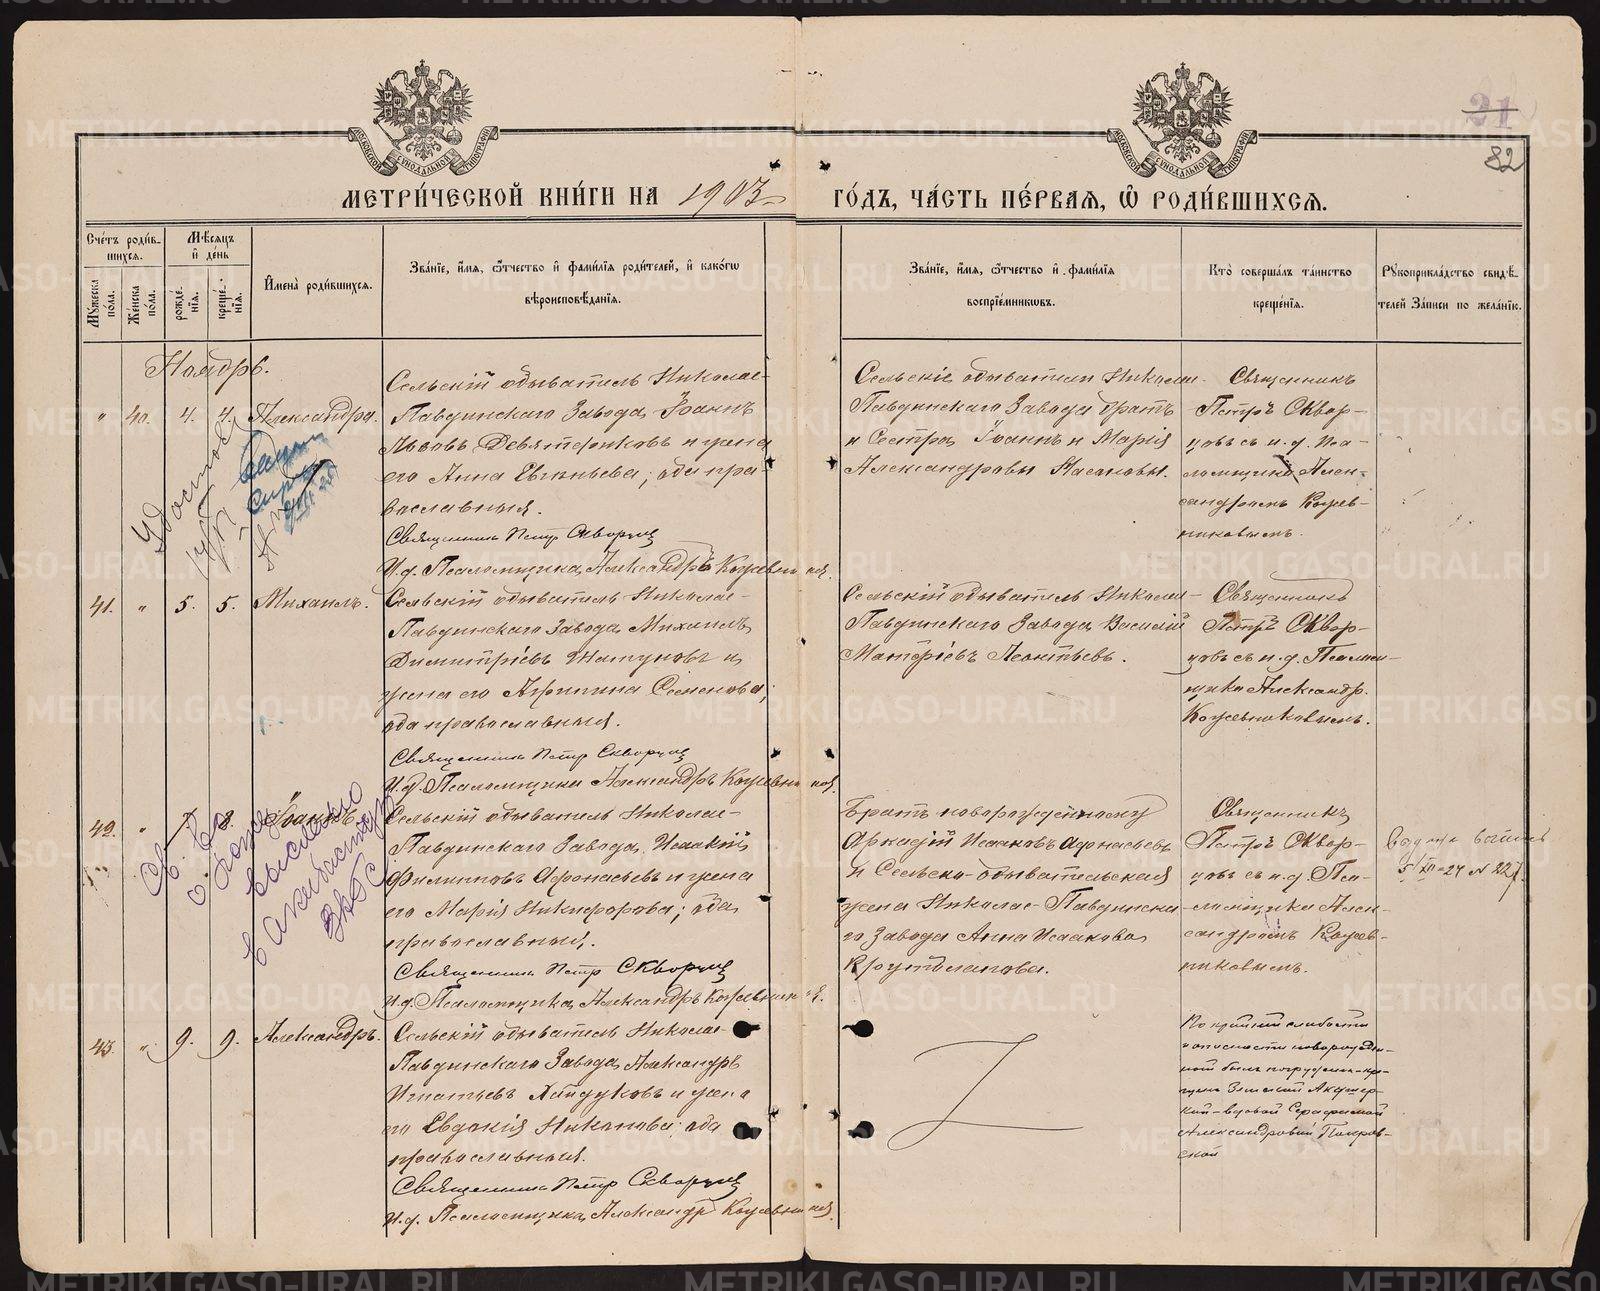 21
82
МЕТРИ́ЧЕСКОЙ КНИ́ГИ НА 1903
ГО́ДЪ, ЧА́СТЬ ПЕ́РВАЯ, Ѡ҆ РОДИ́ВШИХСЯ.
Сче́тъ роди́вшихся.
Мꙋ́жеска по́ла.
Же́нска по́ла.
Мѣ́сяцъ и҆ де́нь
рожде́нїя.
креще́нїя.
И҆мена̀ роди́вшихся.
Зва́нїе, и҆́мя, ѻ҆́тчество и҆ фами́лїя роди́телей, и҆ како́гѡ
вѣроисповѣ́данїя.
Зва́нїе, и҆́мя, ѻ҆́тчество и҆ фами́лїя
воспрїе́мникѡвъ.
Кто̀ соверша́лъ та́инство
креще́нїя.
Рꙋкоприкла́дство свидѣ́телей за́писи по жела́нїю.
Ноябрь.
" 40. 4. 4. Александра.
Сельскій обыватель Николае-
Павдинскаго Завода Іоаннъ
Львовъ Девятериковъ и жена
его Анна Евгеньева; оба пра-
вославныя.
Священникъ Петръ Скворцов
И.д. Псаломщика Александръ Кожевников.
Сельскіе обыватели Николае-
Павдинскаго Завода братъ
и Сестра Іоаннъ и Марія
Александровы
Священникъ
Петръ Сквор-
цовъ съ и. д. Пса-
ломщика Алек-
сандромъ Кожев-
никовымъ.
41. " 5. 5. Михаилъ.
Сельскій обыватель Николае-
Павдинскаго Завода Михаилъ
Димитріевъ Шатуновъ и
жена его Агрипина Семенова;
оба православныя.
Священникъ Петръ Скворцов
И.д. Псаломщика Александръ Кожевников.
Сельскій обыватель Николае-
Павдинскаго Завода Василій
Леонтьевъ.
Священникъ
Петръ Сквор-
цовъ съ и. д. Псалом-
щика Александр.
Кожевниковымъ.
42. " 7 8. Іоаннъ
Сельскій обыватель Николае-
Павдинскаго Завода Исаакій
Филиповъ Афонасьевъ и жена
его Марія Никифорова; оба
православныя.
Священникъ Петр Скворцов
И.д. Псаломщика Александръ Кожевников.
Братъ новорожденному
Аркадій Исааковъ Афонасьевъ
и Сельско-обывательская
жена Николае-Павдинска-
го Завода Анна Исаакова
Священникъ
Петръ Сквор-
цовъ съ и.д. Пса-
ломщика Алек-
сандромъ Кожев-
никовымъ.
Св. во
о рожд
выслано
в
ЗАГС
43. " 9. 9. Александръ.
Сельскій обыватель Николае-
Павдинскаго Завода Александръ
Игнатьевъ Хайдуковъ и жена
его Евдокія Никонова; оба
православныя.
Священникъ Петр Скворцов
И.д. Псаломщика Александръ Кожевников
По крайней слабости
и опасности новорожден-
ной былъ погруженъ кре-
щенъ Земской Акушер-
кой-вдовой Серафимой
Александровой Покров-
ской